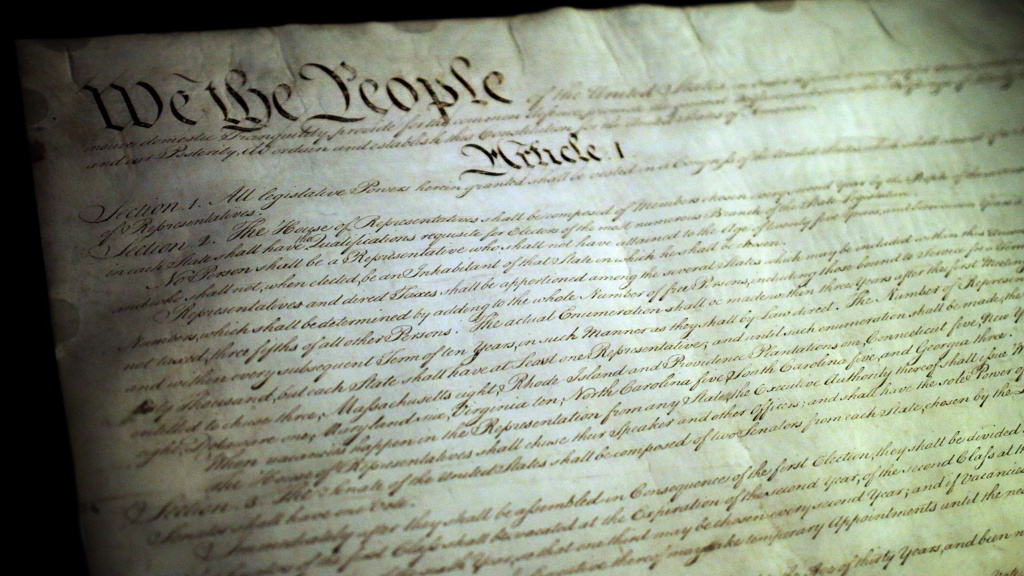 We the People of the United States
insure domestic Tranquility, provide for the common defence,
and our Posterity, do ordain and establish this Constitution
Article. I.
Section. 1. All legislative Powers herein granted shall be vested in a Congress of the
of Representatives.
Section. 2. The House of Representatives shall be composed of Members chosen every second Year by the People of the
in each State shall have Qualifications requisite for Electors of the most numerous Branch of the State Legislature.
No Person shall be a Representative who shall not have attained to the Age of twenty five Years,
and who shall not, when elected, be an Inhabitant of that State in which he shall be chosen.
Representatives and direct Taxes shall be apportioned among the several States which may be included within this
Numbers, which shall be determined by adding to the whole Number of free Persons, including those bound to Service for a Term
not taxed, three fifths of all other Persons. The actual Enumeration shall be made within three Years after the first Meeting
and within every subsequent Term of ten Years, in such Manner as they shall by Law direct. The Number of
thirty Thousand, but each State shall have at Least one Representative; and until such enumeration shall be made, the
entitled to chuse three, Massachusetts eight, Rhode Island and Providence Plantations one, Connecticut five, New
eight, Delaware one, Maryland six, Virginia ten, North Carolina five, South Carolina five, and Georgia three.
When vacancies happen in the Representation from any State, the Executive Authority thereof shall issue
The House of Representatives shall chuse their Speaker and other Officers; and shall have the sole Power of
Section. 3. The Senate of the United States shall be composed of two Senators from each State, chosen by the
Senator shall have one Vote.
Immediately after they shall be assembled in Consequence of the first Election, they shall be divided
of the first Class shall be vacated at the Expiration of the second Year, of the second Class at the
Year, so that one third may be chosen every second Year; and if Vacancies
Executive thereof may make temporary Appointments until the
Age of thirty Years, and been